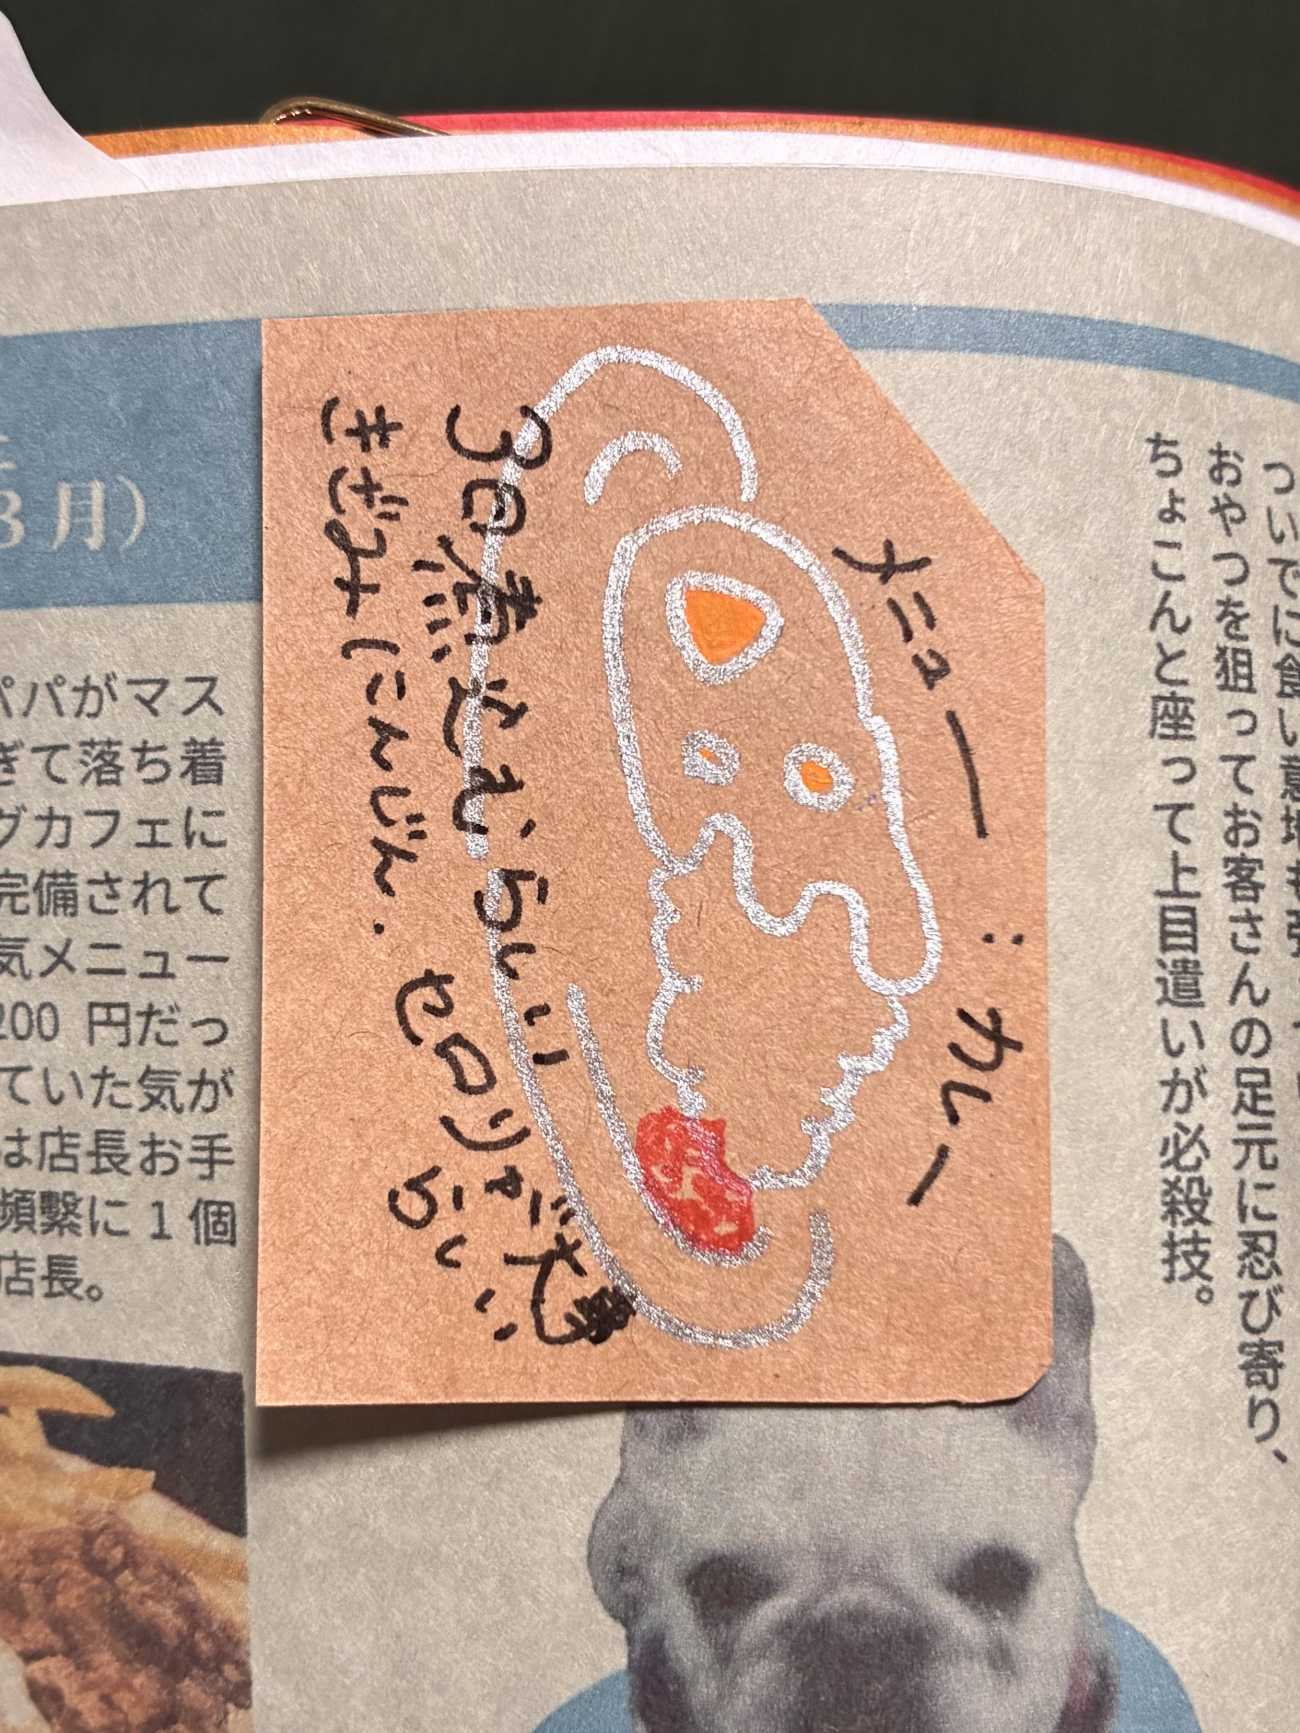 ついでに食い意地も
おやつを狙ってお客さんの足元に忍び寄り、
ちょこんと座って上目遣いが必殺技。
メニュー：カレー
3日煮こむらしい
きざみにんじん.
セロリ
らしい
3月）
パパがマス
ぎて落ち着
グカフェに
完備されて
気メニュー
200 円だっ
ていた気が
は店長お手
頻繁に 1 個
店長。